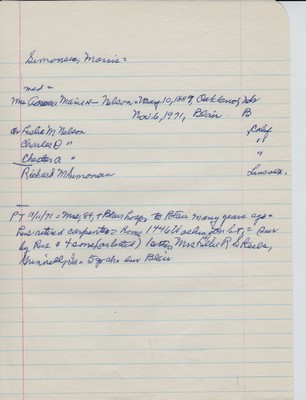 Simonsen, Morris =
med =
Mrs. Marie H - Nelson = May 10, 1887, Oakland, Nebr
Nov 6, 1971, Blair B
Leslie M Nelson , Calif
Charles D " "
Chester A " "
Richard M Simonsen Lincoln.
PT 11/11/71 = Mrs, 84, + Blair hosp = to Blair many years ago =
Hus retired carpenter = Home 1446 Washington St, = sur
by Hus & 4 sons (as listed) (sister Mrs R S
Grinnell, Ia = 5 g ch = bur Blair